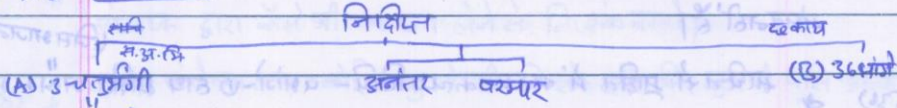 निक्षिप्त
स.अ.मि
(A) 3-चतुर्भंगी अनंतर परम्पर (B) 36 भांगे